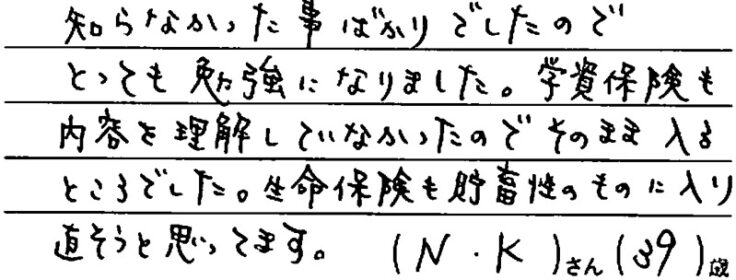 知らなかった事ばかりでしたので
とっても勉強になりました。学資保険も
内容を理解していなかったのでそのまま入る
ところでした。生命保険も貯蓄性のものに入り
直そうと思ってます。 (N.K)さん(39)歳